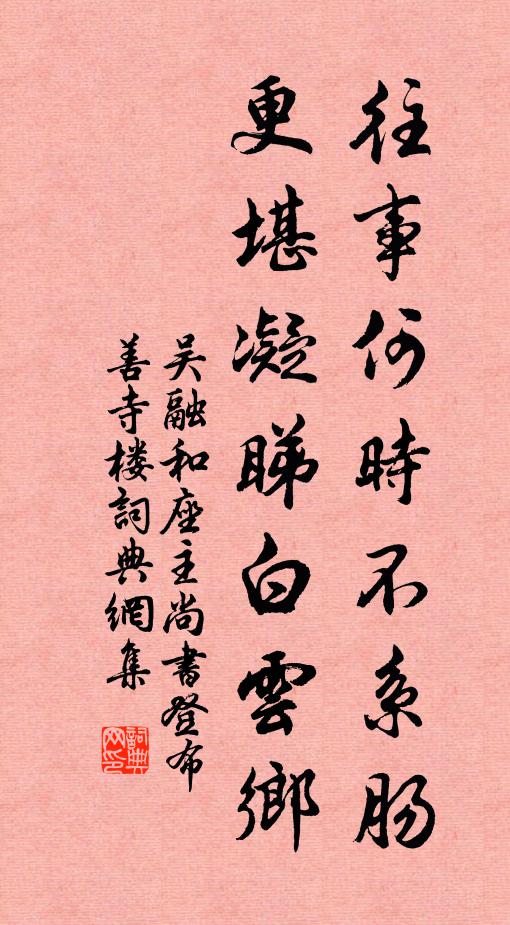 往事何時不系肠
更堪凝睇白雲鄉
吴融和座主尚書登布
善寺楼詞典網集
詞典网印